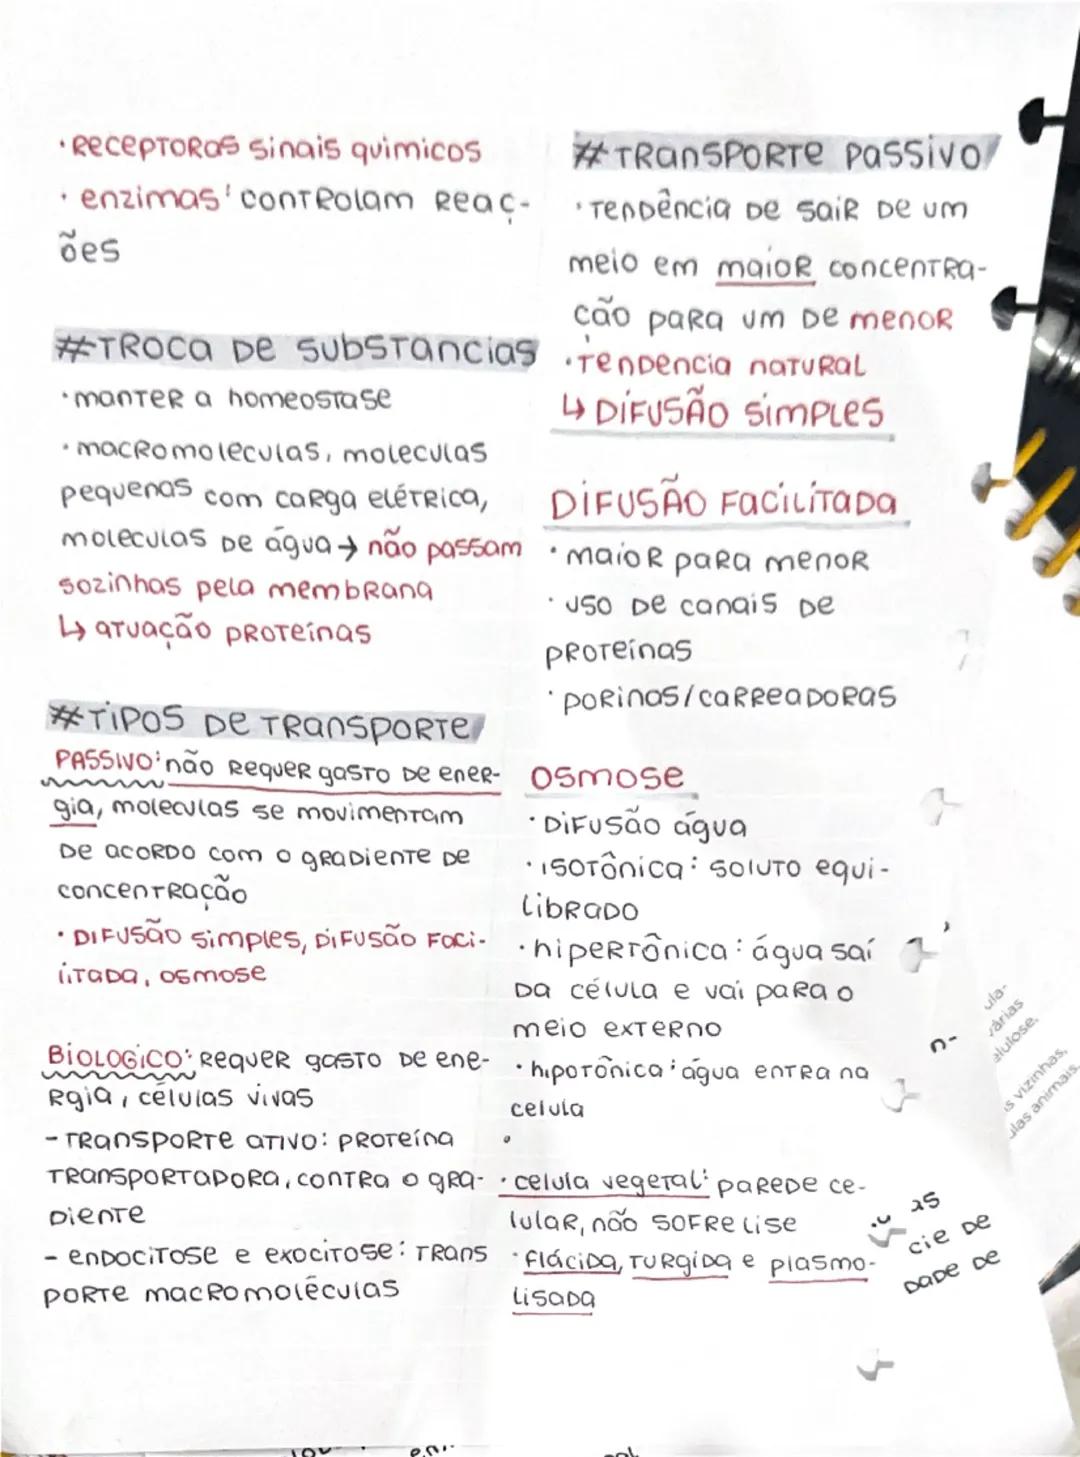 · RECEPTORAS sinais quimicos
· enzimas: CONTROLAM REAÇ-
ões
#TROCA DE SUBSTANCIAS
· MANTER A homeostase
· macromoleculas, moleculas
pequenas com carga elétrica,
moleculas de água → não passam
sozinhas pela membrana
↳ atuação proteínas
#TIPOS DE TRANSPORTE
PASSIVO: não REQUER gasto de ener-
gia, moleculas se movimentam
de acordo com o gradiente de
concentração
· Difusão simples, Difusão Faci-
litada, osmose
BIOLOGICO: REQUER gasto de ene-
Rgia, células vivas
- TRANSPORTE ATIVO: PROTEÍNA
TRANSPORTADORA, CONTRA o gra-
Diente
- endocitose e exocitose: TRANS
PORTE macromoléculas
#TRANSPORTE PASSIVO
· Tendência de sair de um
meio em maior concentra-
ção para um de menor
· Tendencia natural
↳ DIFUSÃO SIMPLES
DIFUSÃO FACILITADA
· maior para menor
· uso de canais de
proteínas
· porinas/carreadoras
OSMOSE
· Difusão água
· isotônica: soluto equi-
librado
· hipertônica: água saí
da célula e vai para o
meio externo
· hipotônica: água entra na
celula
·
· celula vegetal: parede ce-
lular, não sofre lise
· flácida, turgida e plasmo-
lisada
ula-
várias
elulose.
is vizinhas,
ulas animais.
n-
as
cie de
dade de